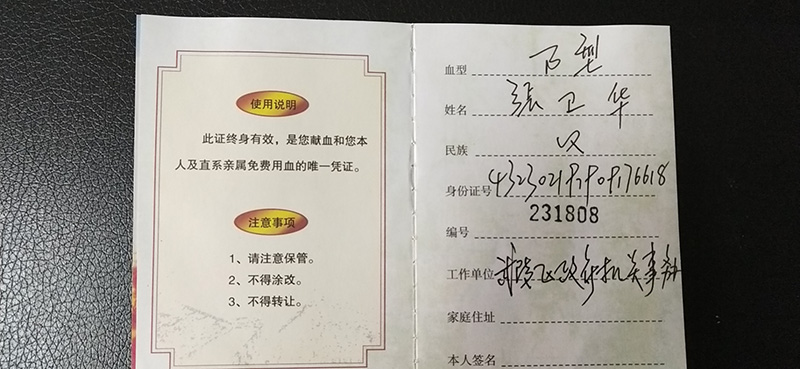 使用说明
此证终身有效，是您献血和您本
人及直系亲属免费用血的唯一凭证。
注意事项
1、请注意保管。
2、不得涂改。
3、不得转让。
血型 B型
姓名 张卫华
民族 汉
身份证号
编号 231808
工作单位
家庭住址
本人签名